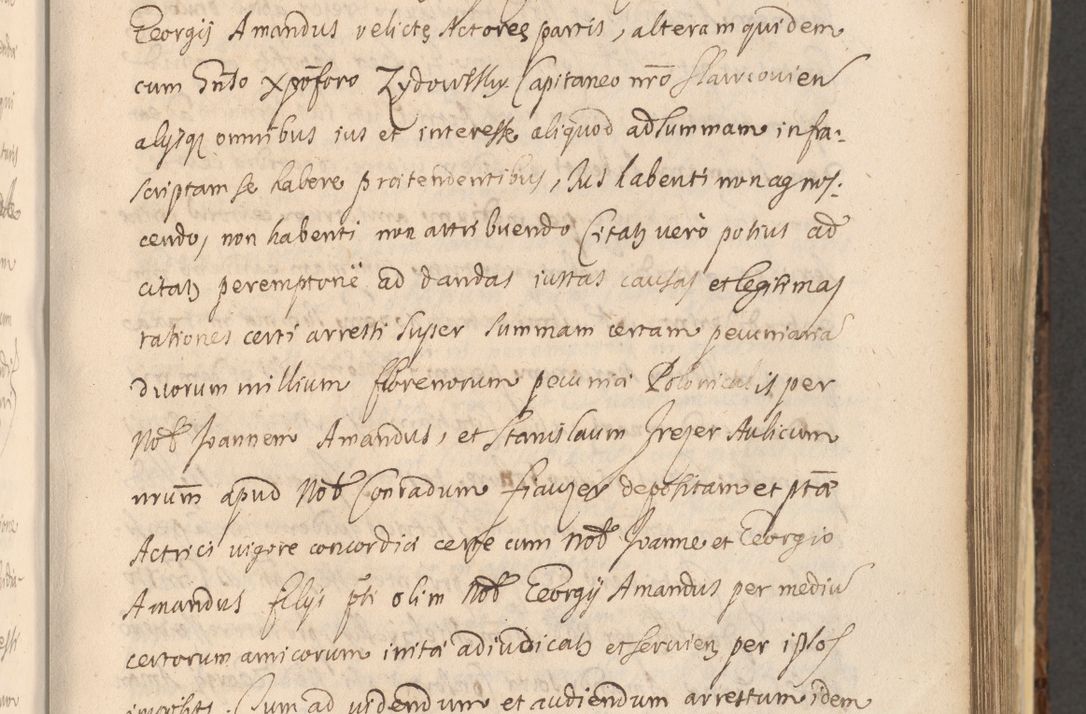 Georgij Amandus relictę Actores partis, alteram quidem
cum Gnso Xpoforo Zydowsky Capitaneo nro Slawcovien
alijsq omnibus ius et interesse aliquod ad summam infra:
scriptam se habere praetendentibus, Ius habenti non agnos:
cendo, non habenti non attribuendo Citatq verò potius ad
citatq peremptorie ad dandas iustas causas et legitimas
rationes certi arresti super summam certam pecuniaria
duorum millium florenorum pecuniae Polonicalis per
Nob Joannem Amandus, et Stanislaum Greser Aulicum
nrum apud Nob Conradum depositam et ptae
Actrici vigore concordiae certe cum Nob Joanne et Georgio
Amandus filijs pti olim Nob Georgij Amandus per mediu
certorum amicorum initae adiudicatq et servien per ipsos
Cum ad videndum et audiendum arrestum idem